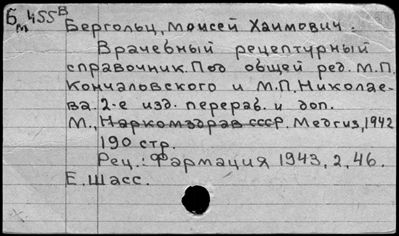 Б 455В
м
Бергольц, Моисей Хаимович.
Врачебный рецептурный
справочник. Под общей ред. М.П.
Кончаловского и М.П. Николае-
ва. 2-е изд. перераб. и доп.
М., Наркомздрав СССР. Медгиз, 1942
190 стр.
Рец.: Фармация 1943, 2, 46.
Е. Шасс.